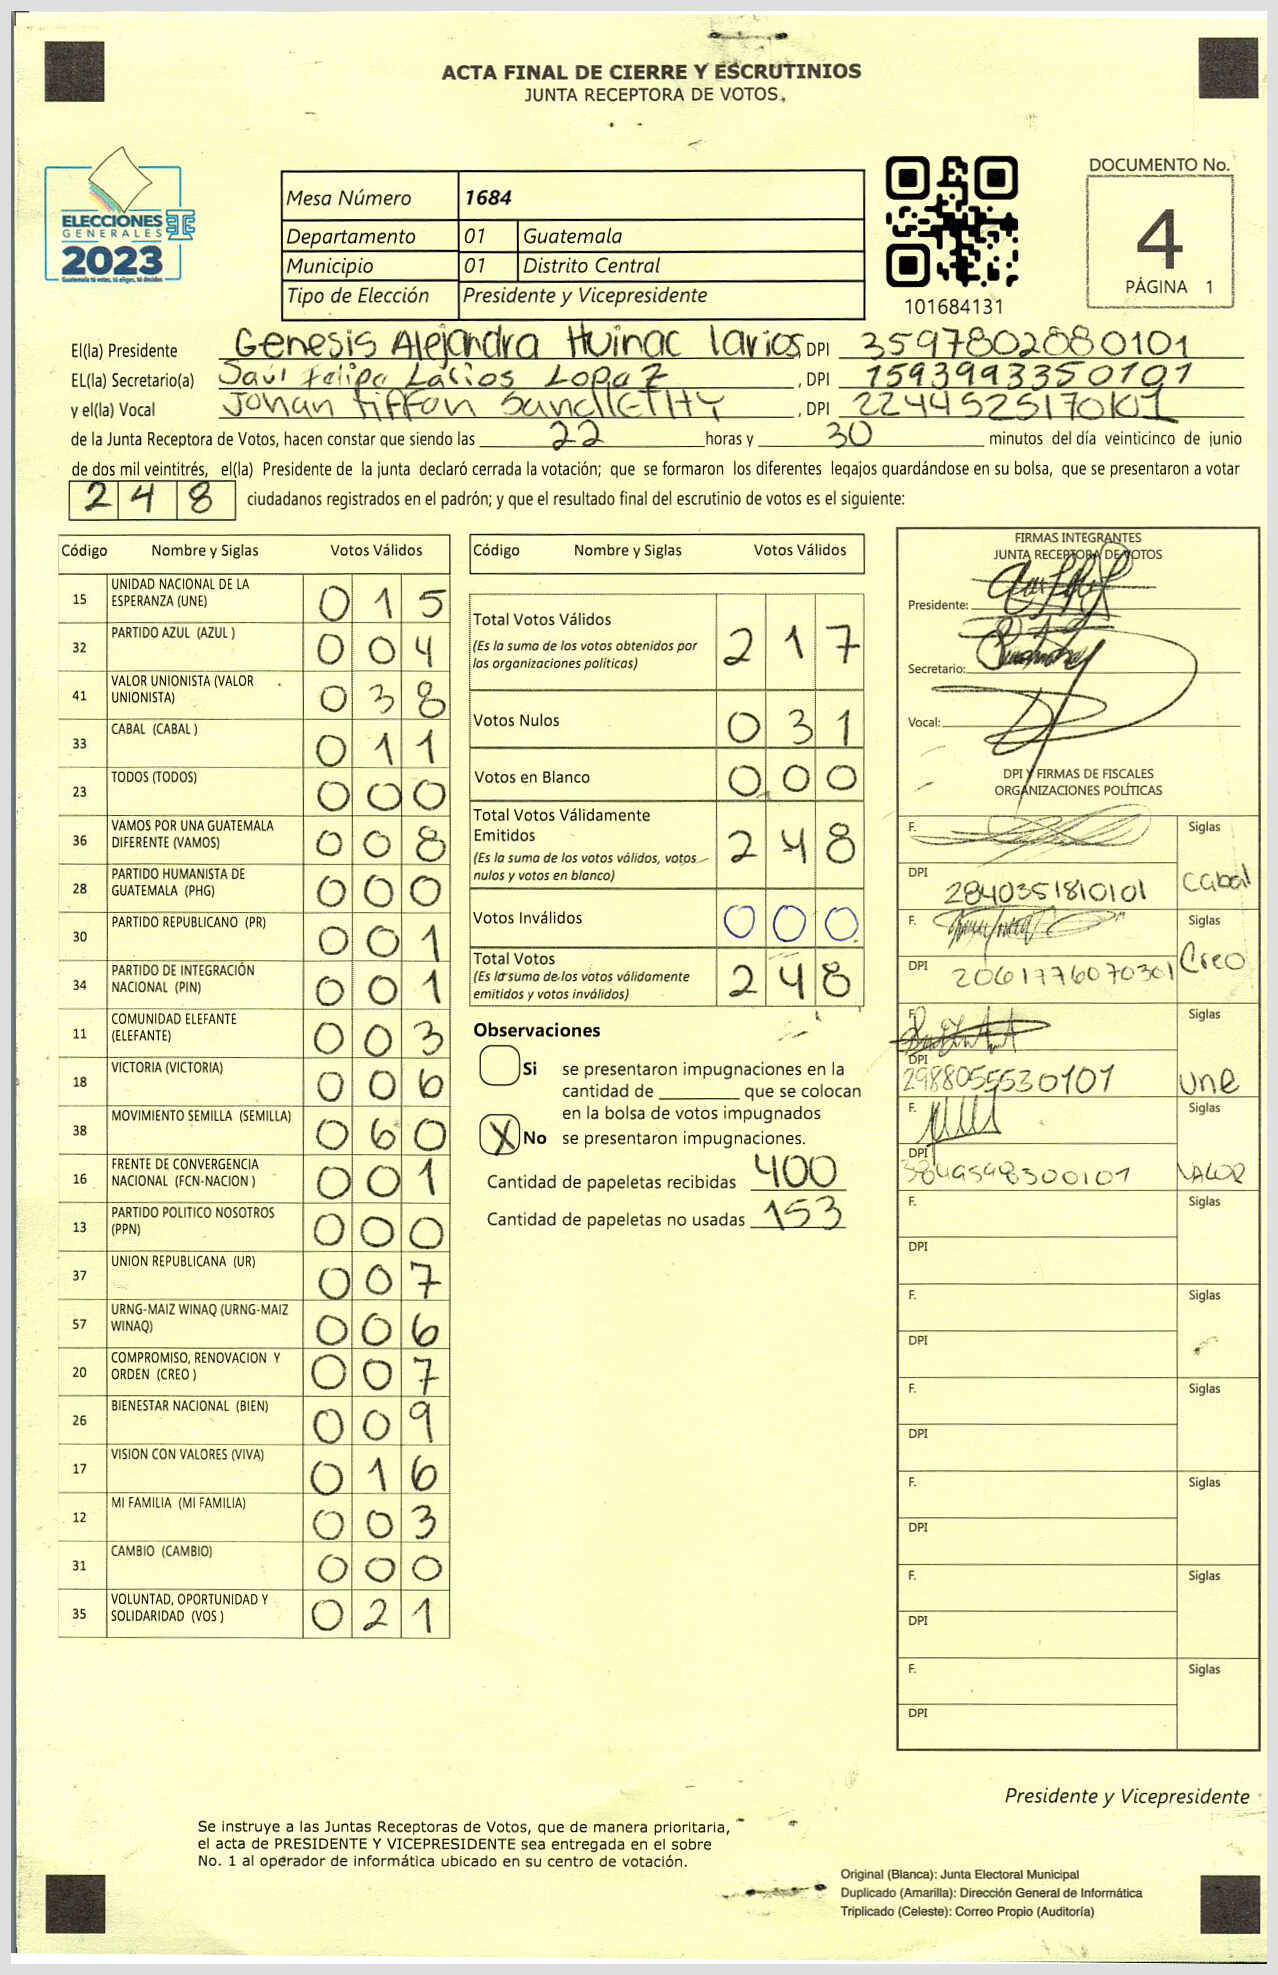 ACTA FINAL DE CIERRE Y ESCRUTINIOS
JUNTA RECEPTORA DE VOTOS
ELECCIONES
GENERALES
2023
Guatemala tú votas, tú eliges, tú decides
Mesa Número 1684
Departamento 01 Guatemala
Municipio 01 Distrito Central
Tipo de Elección Presidente y Vicepresidente
101684131
DOCUMENTO No.
4
PÁGINA 1
El(la) Presidente Genesis Alejandra Huinac larios DPI 3597802880101
EL(la) Secretario(a) Saúl Felipe Larios Lopaz , DPI 1593993350101
y el(la) Vocal Johan , DPI
de la Junta Receptora de Votos, hacen constar que siendo las 22 horas y 30 minutos del día veinticinco de junio
de dos mil veintitrés, el(la) Presidente de la junta declaró cerrada la votación; que se formaron los diferentes legajos guardándose en su bolsa, que se presentaron a votar
248 ciudadanos registrados en el padrón; y que el resultado final del escrutinio de votos es el siguiente:
Código Nombre y Siglas Votos Válidos
15 UNIDAD NACIONAL DE LA ESPERANZA (UNE) 015
32 PARTIDO AZUL (AZUL ) 004
41 VALOR UNIONISTA (VALOR UNIONISTA) 038
33 CABAL (CABAL ) 011
23 TODOS (TODOS) 000
36 VAMOS POR UNA GUATEMALA DIFERENTE (VAMOS) 008
28 PARTIDO HUMANISTA DE GUATEMALA (PHG) 000
30 PARTIDO REPUBLICANO (PR) 001
34 PARTIDO DE INTEGRACIÓN NACIONAL (PIN) 001
11 COMUNIDAD ELEFANTE (ELEFANTE) 003
18 VICTORIA (VICTORIA) 006
38 MOVIMIENTO SEMILLA (SEMILLA) 060
16 FRENTE DE CONVERGENCIA NACIONAL (FCN-NACION ) 001
13 PARTIDO POLITICO NOSOTROS (PPN) 000
37 UNION REPUBLICANA (UR) 007
57 URNG-MAIZ WINAQ (URNG-MAIZ WINAQ) 006
20 COMPROMISO, RENOVACION Y ORDEN (CREO ) 007
26 BIENESTAR NACIONAL (BIEN) 009
17 VISION CON VALORES (VIVA) 016
12 MI FAMILIA (MI FAMILIA) 003
31 CAMBIO (CAMBIO) 000
35 VOLUNTAD, OPORTUNIDAD Y SOLIDARIDAD (VOS ) 021
Código Nombre y Siglas Votos Válidos
Total Votos Válidos 217
(Es la suma de los votos obtenidos por
las organizaciones políticas)
Votos Nulos 031
Votos en Blanco 000
Total Votos Válidamente
Emitidos 248
(Es la suma de los votos válidos, votos
nulos y votos en blanco)
Votos Inválidos 000
Total Votos 248
(Es la suma de los votos válidamente
emitidos y votos inválidos)
Observaciones
Si se presentaron impugnaciones en la
cantidad de ________ que se colocan
en la bolsa de votos impugnados
X No se presentaron impugnaciones.
Cantidad de papeletas recibidas 400
Cantidad de papeletas no usadas 153
FIRMAS INTEGRANTES
JUNTA RECEPTORA DE VOTOS
Presidente:
Secretario:
Vocal:
DPI Y FIRMAS DE FISCALES
ORGANIZACIONES POLÍTICAS
F. Siglas
DPI 2840351810101 Cabal
F. Siglas
DPI 2061776070301 Creo
F. Siglas
DPI 2988055530101 une
F. Siglas
DPI 3849598300101 VALOR
F. Siglas
DPI
F. Siglas
DPI
F. Siglas
DPI
F. Siglas
DPI
F. Siglas
DPI
F. Siglas
DPI
Presidente y Vicepresidente
Se instruye a las Juntas Receptoras de Votos, que de manera prioritaria,
el acta de PRESIDENTE Y VICEPRESIDENTE sea entregada en el sobre
No. 1 al operador de informática ubicado en su centro de votación.
Original (Blanca): Junta Electoral Municipal
Duplicado (Amarilla): Dirección General de Informática
Triplicado (Celeste): Correo Propio (Auditoría)